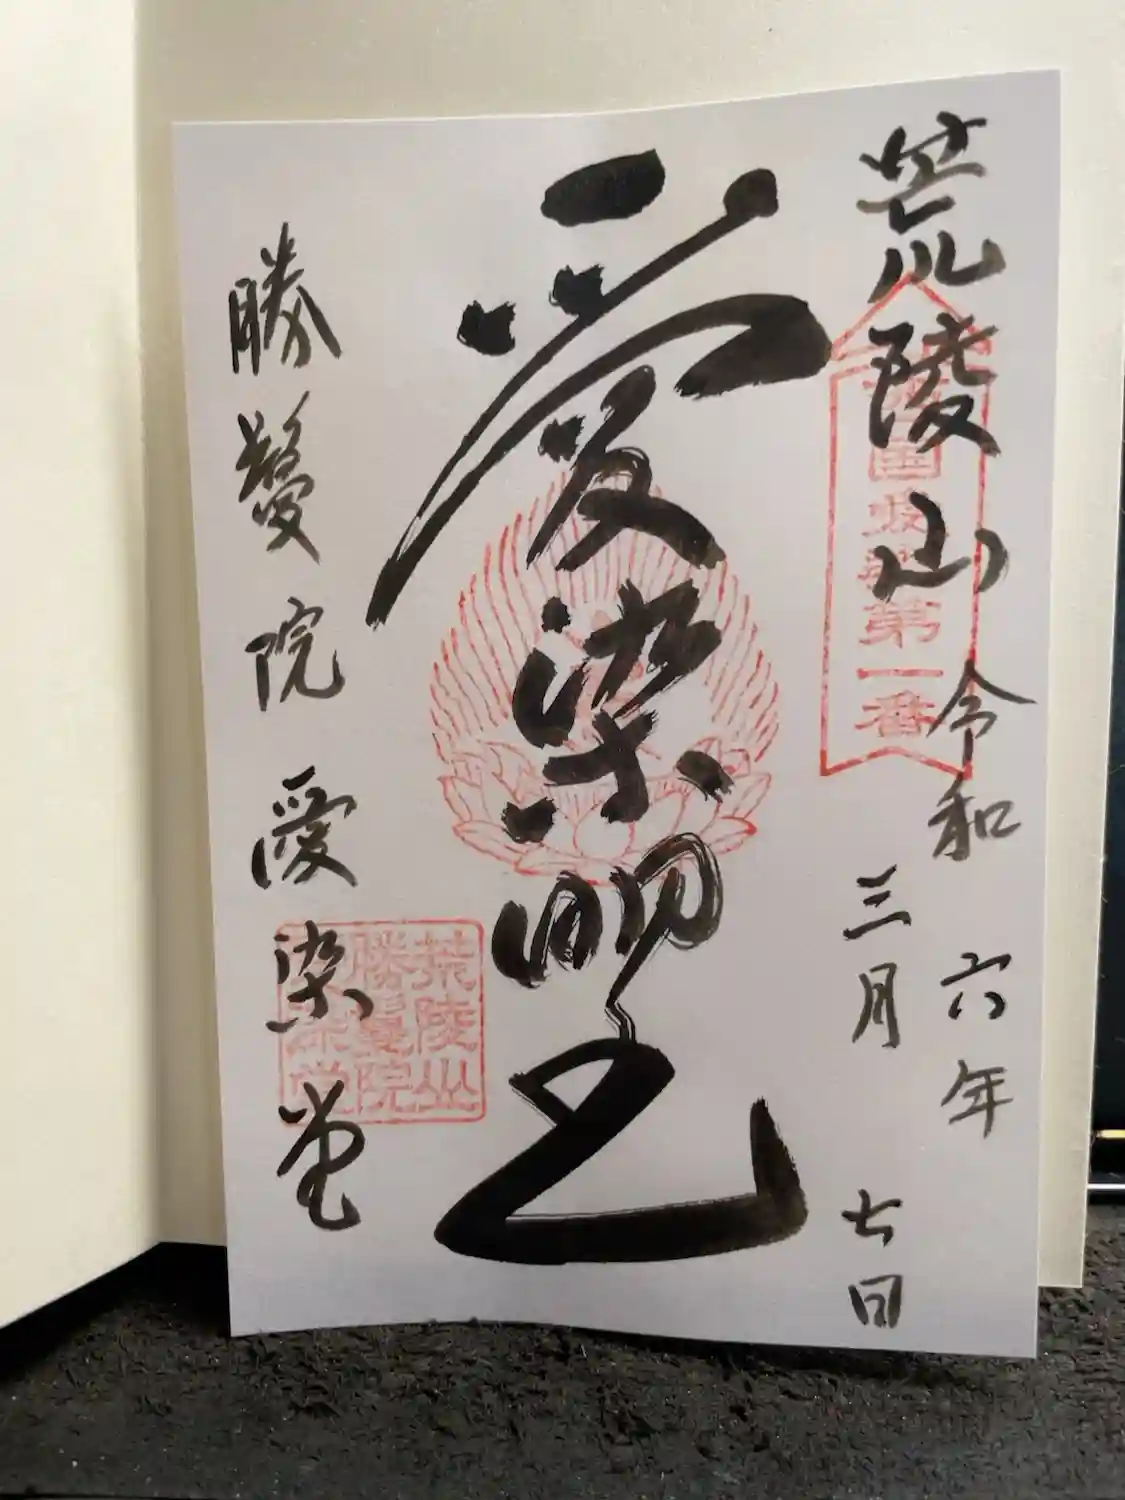 荒陵山
令和六年
三月七日
愛染明王
勝鬘院
愛染堂
荒陵山
勝鬘院
愛染堂